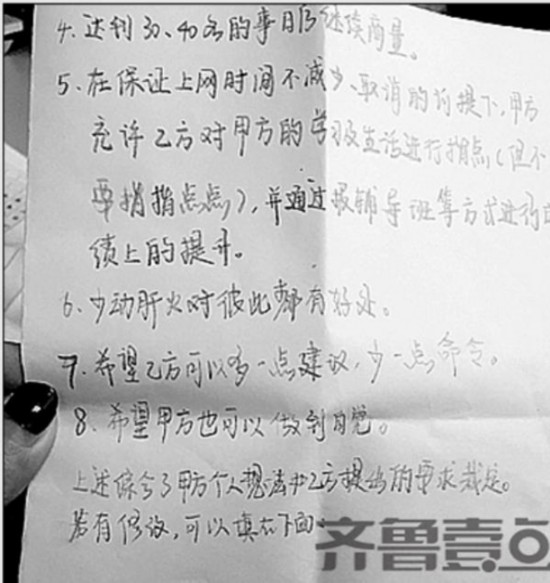 4、达到30、40名的事日后继续商量。
5、在保证上网时间不减少、取消的前提下,甲方
允许乙方对甲方的学习及生活进行指点(但不
要指指点点),并通过报辅导班等方式进行成
绩上的提升。
6、少动肝火对彼此都有好处。
7、希望乙方可以多一点建议,少一点命令。
8、希望甲方也可以做到自觉。
上述综合了甲方个人想法和乙方提出的要求裁定。
若有修改,可以填在下面
齐鲁壹点